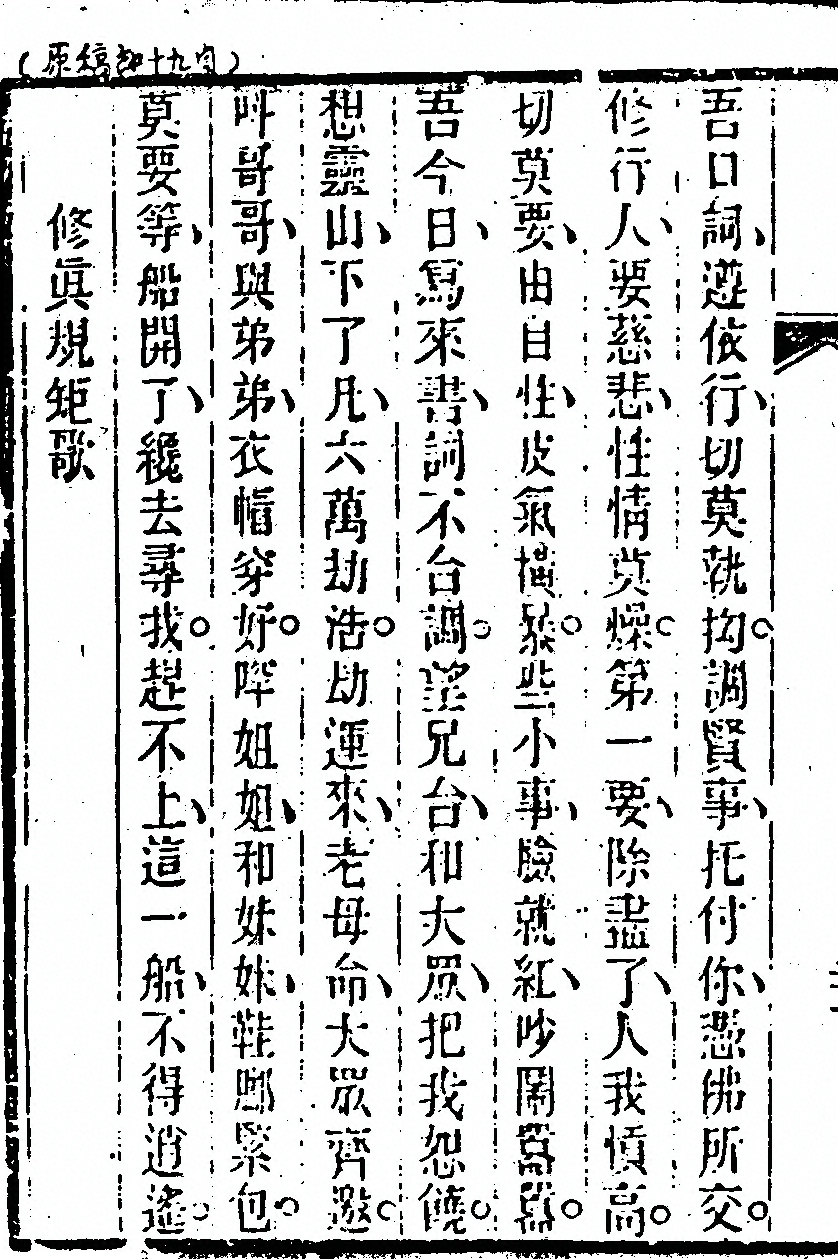 （原稿卽十九頁）
吾口詞、遵依行、切莫執拘。調賢事、托付你、憑佛所交。
修行人、要慈悲、性情莫燥。第一要、除盡了、人我慎高。
切莫要、由自性、皮氣橫暴。些小事、臉就紅、吵鬧囂囂。
吾今日、寫來書、詞不合調。望兄台、和大眾、把我恕饒。
想靈山、下了凡、六萬劫浩。劫運來、老母命、大眾齊邀。
叫哥哥、與弟弟、衣帽穿好。喊姐姐、和妹妹、鞋腳緊包。
莫要等、船開了、纔去尋找。趕不上、這一船、不得逍遙。
修眞規矩歌